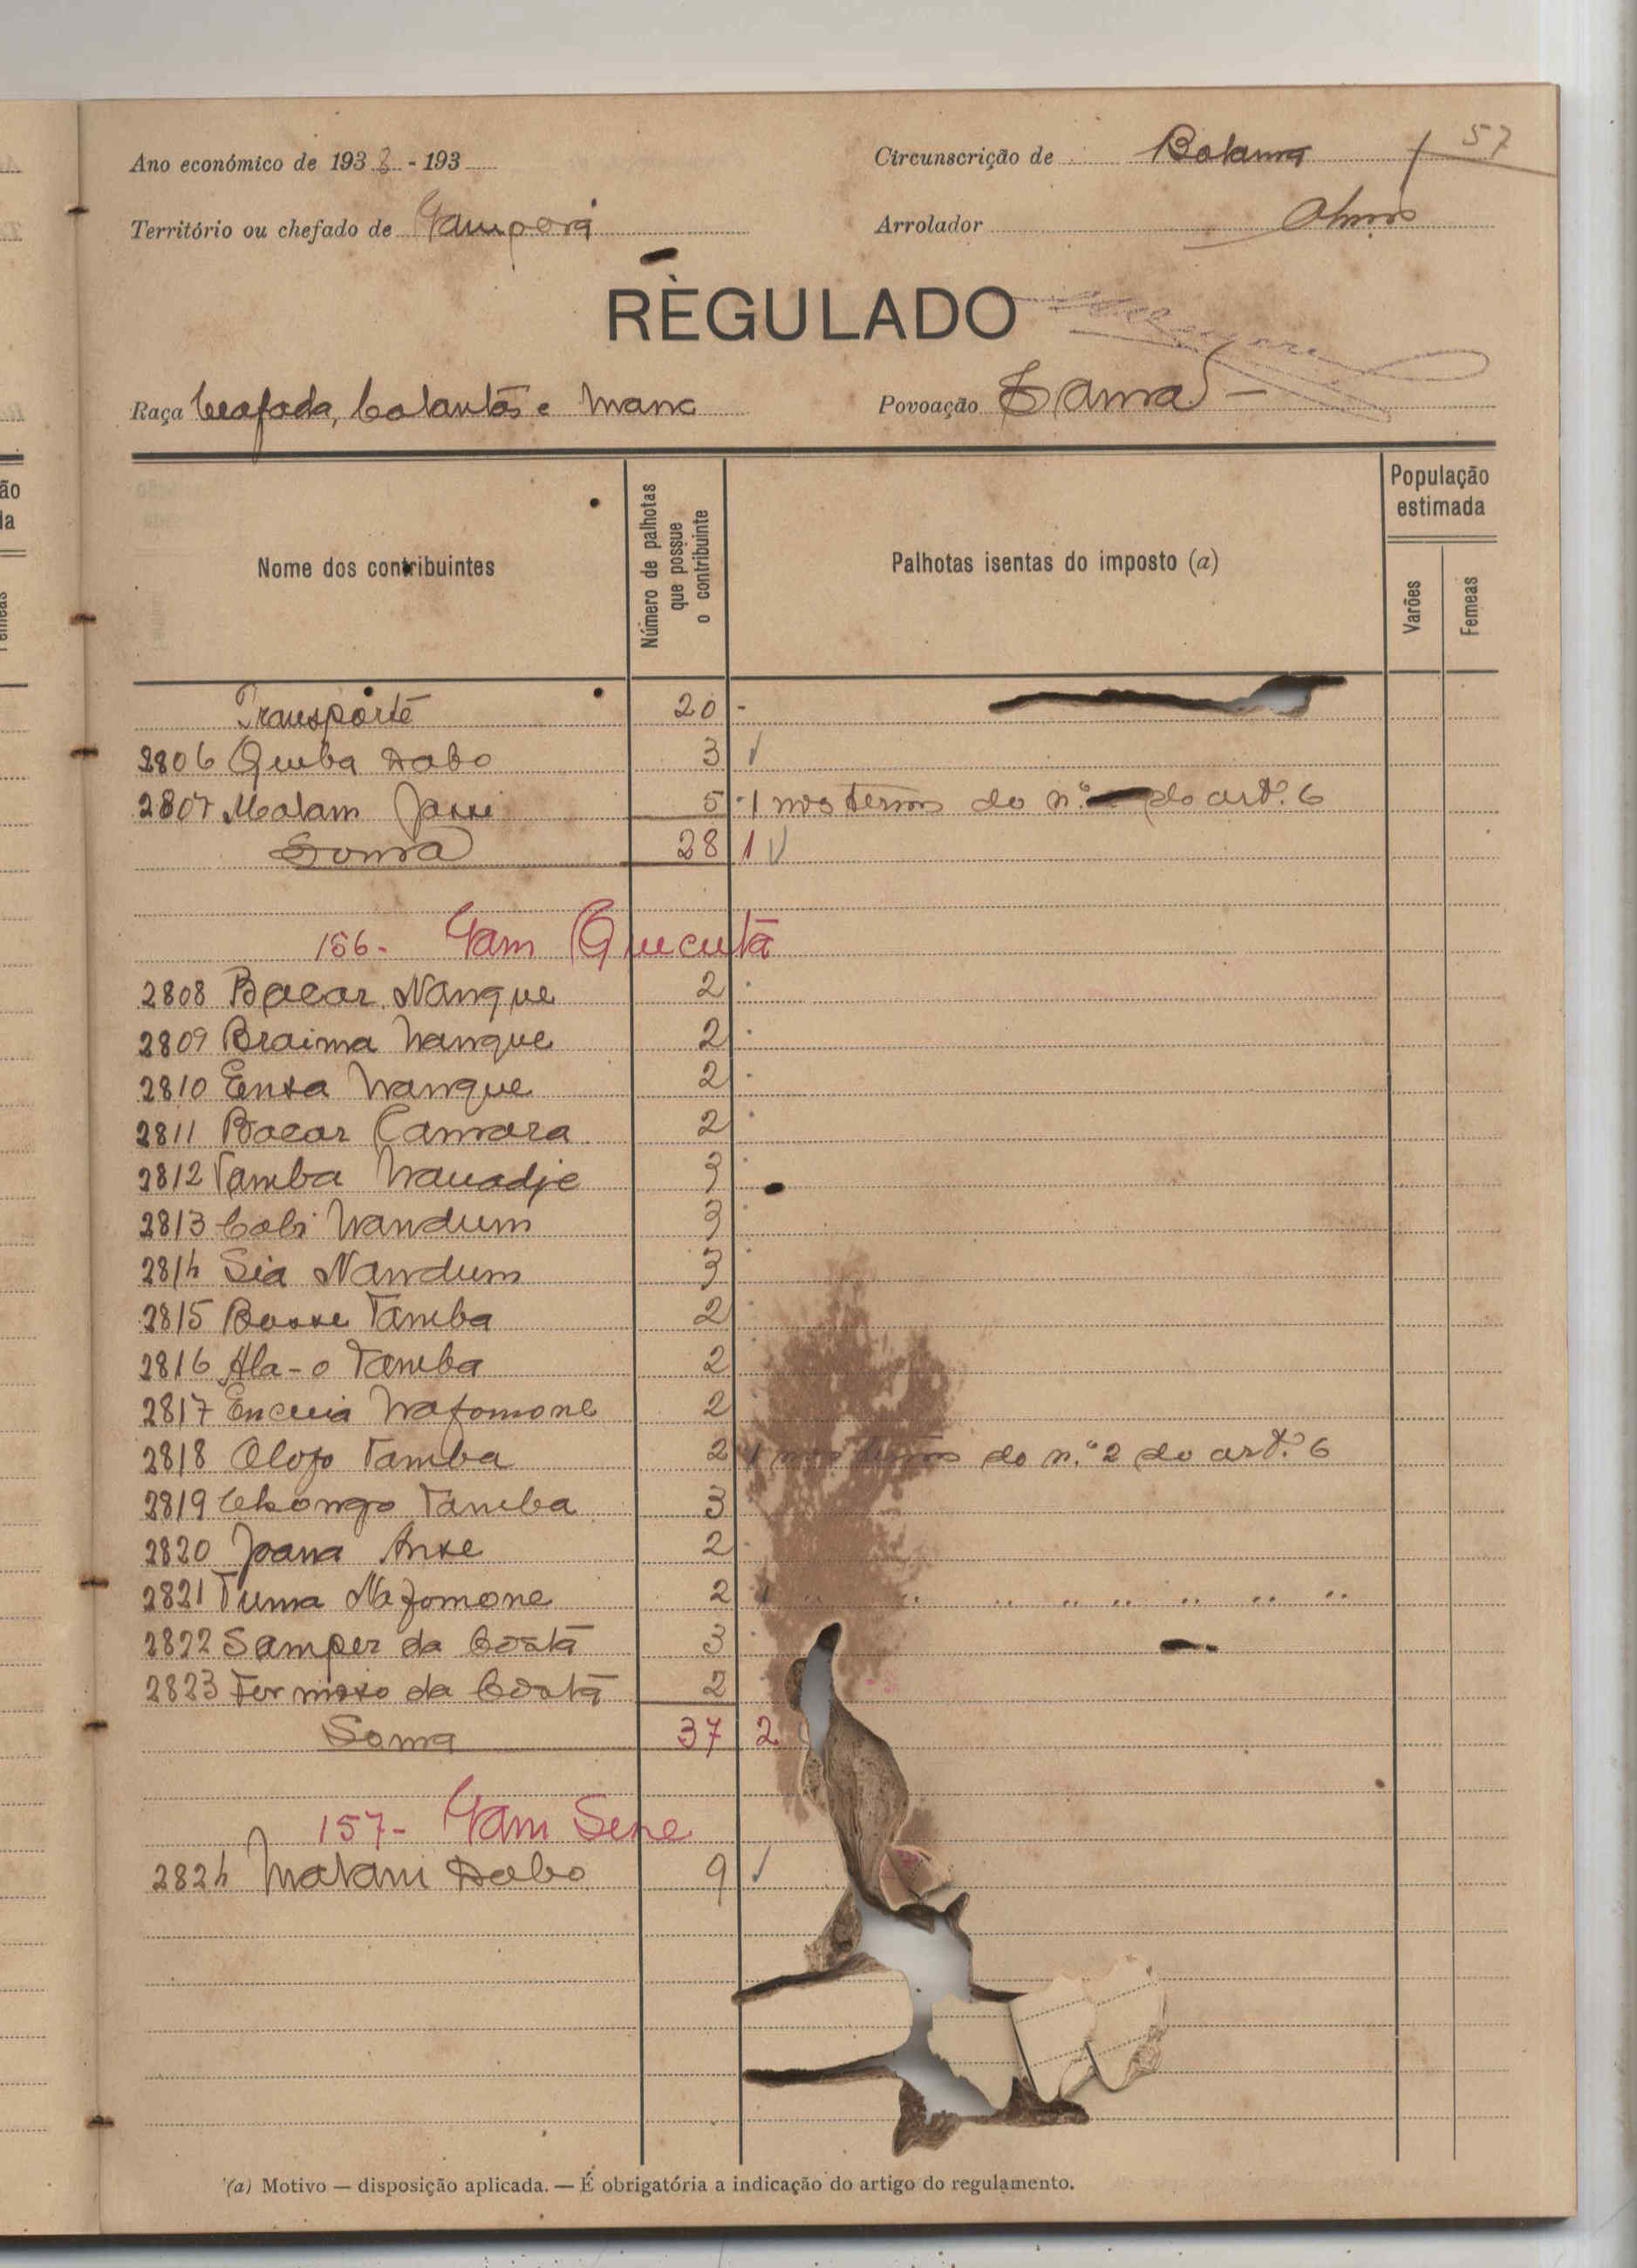 57
Ano económico de 1938 - 193
Circunscrição de Bolama
Território ou chefado de Gamporá
Arrolador
REGULADO
Raça Beafada, Balantas e Manc
Povoação
Nome dos contribuintes
Número de palhotas que possue o contribuinte
Palhotas isentas do imposto (a)
População estimada
Varões
Femeas
Transporte 20 -
2806 Quiba Dabo 3 √
2807 Malam Jassi 5 -1 nos termos do n.º do art.º 6
Soma 28 1 √
156- Gam Quecutá
2808 Bacar Nanque 2
2809 Braima Nanque 2
2810 Ensa Nanque 2
2811 Bacar Camara 2
2812 Tamba Nauadje 3
2813 Cabi Nandum 3
2814 Sia Nandum 3
2815 Bosse Tamba 2
2816 Ala-o Tamba 2
2817 Encuia Nafomone 2
2818 Olofo Tamba 2 1 nos termos do n.º 2 do art.º 6
2819 Chongo Tamba 3
2820 Joana Anse 2
2821 Tuma Nafomone 2 1 " " " " " " " "
2822 Samper da Costa 3
2823 Formoso da Costa 2
Soma 37 2
157- Gam Sene
2824 Malam Dabo 9 √
(a) Motivo — disposição aplicada. — É obrigatória a indicação do artigo do regulamento.